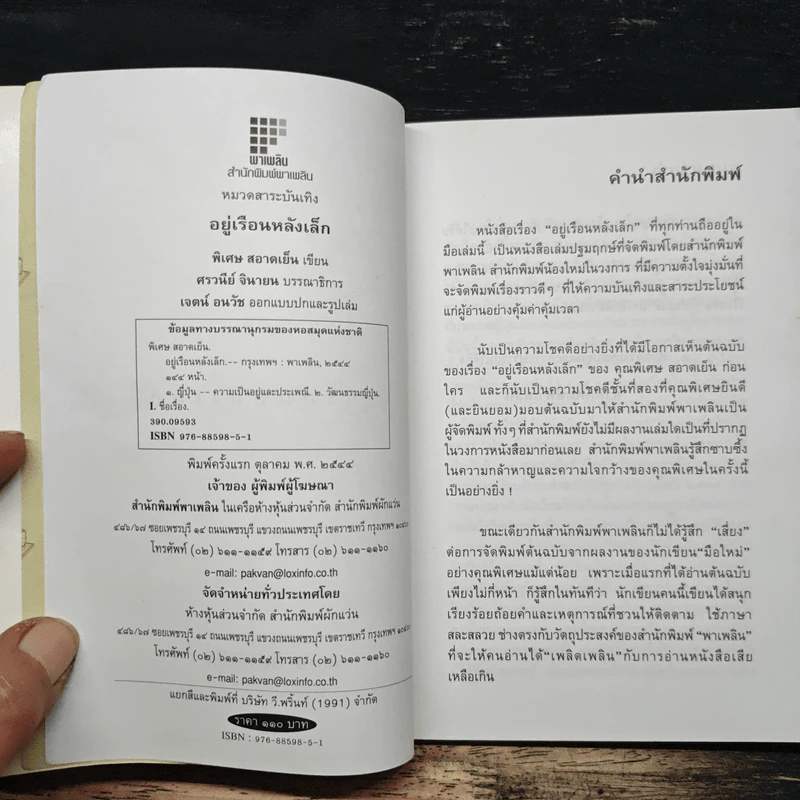 พาเพลิน
สำนักพิมพ์พาเพลิน
หมวดสาระบันเทิง
อยู่เรือนหลังเล็ก
พิเศษ สอาดเย็น เขียน
ศรวนีย์ จินายน บรรณาธิการ
เจตน์ อนวัช ออกแบบปกและรูปเล่ม
ข้อมูลทางบรรณานุกรมของหอสมุดแห่งชาติ
พิเศษ สอาดเย็น.
อยู่เรือนหลังเล็ก.-- กรุงเทพฯ : พาเพลิน, ๒๕๔๔
๑๔๔ หน้า.
๑. ญี่ปุ่น -- ความเป็นอยู่และประเพณี. ๒. วัฒนธรรมญี่ปุ่น.
I. ชื่อเรื่อง.
390.09593
ISBN 976-88598-5-1
พิมพ์ครั้งแรก ตุลาคม พ.ศ. ๒๕๔๔
เจ้าของ ผู้พิมพ์ผู้โฆษณา
สำนักพิมพ์พาเพลิน ในเครือห้างหุ้นส่วนจำกัด สำนักพิมพ์ผักแว่น
๔๘๖/๖๗ ซอยเพชรบุรี ๑๔ ถนนเพชรบุรี แขวงถนนเพชรบุรี เขตราชเทวี กรุงเทพฯ ๑๐๔๐๐
โทรศัพท์ (๐๒) ๖๑๑-๑๑๕๙ โทรสาร (๐๒) ๖๑๑-๑๑๖๐
e-mail: pakvan@loxinfo.co.th
จัดจำหน่ายทั่วประเทศโดย
ห้างหุ้นส่วนจำกัด สำนักพิมพ์ผักแว่น
๔๘๖/๖๗ ซอยเพชรบุรี ๑๔ ถนนเพชรบุรี แขวงถนนเพชรบุรี เขตราชเทวี กรุงเทพฯ ๑๐๔๐๐
โทรศัพท์ (๐๒) ๖๑๑-๑๑๕๙ โทรสาร (๐๒) ๖๑๑-๑๑๖๐
e-mail: pakvan@loxinfo.co.th
แยกสีและพิมพ์ที่ บริษัท วี.พริ้นท์ (1991) จำกัด
ราคา ๑๑๐ บาท
ISBN : 976-88598-5-1
คำนำสำนักพิมพ์
หนังสือเรื่อง “อยู่เรือนหลังเล็ก” ที่ทุกท่านถืออยู่ใน
มือเล่มนี้ เป็นหนังสือเล่มปฐมฤกษ์ที่จัดพิมพ์โดยสำนักพิมพ์
พาเพลิน สำนักพิมพ์น้องใหม่ในวงการ ที่มีความตั้งใจมุ่งมั่นที่
จะจัดพิมพ์เรื่องราวดีๆ ที่ให้ความบันเทิงและสาระประโยชน์
แก่ผู้อ่านอย่างคุ้มค่าคุ้มเวลา
นับเป็นความโชคดีอย่างยิ่งที่ได้มีโอกาสเห็นต้นฉบับ
ของเรื่อง “อยู่เรือนหลังเล็ก” ของ คุณพิเศษ สอาดเย็น ก่อน
ใคร และก็นับเป็นความโชคดีชั้นที่สองที่คุณพิเศษยินดี
(และยินยอม) มอบต้นฉบับมาให้สำนักพิมพ์พาเพลินเป็น
ผู้จัดพิมพ์ ทั้งๆ ที่สำนักพิมพ์ยังไม่มีผลงานเล่มใดเป็นที่ปรากฏ
ในวงการหนังสือมาก่อนเลย สำนักพิมพ์พาเพลินรู้สึกซาบซึ้ง
ในความกล้าหาญและความใจกว้างของคุณพิเศษในครั้งนี้
เป็นอย่างยิ่ง !
ขณะเดียวกันสำนักพิมพ์พาเพลินก็ไม่ได้รู้สึก “เสี่ยง”
ต่อการจัดพิมพ์ต้นฉบับจากผลงานของนักเขียน“มือใหม่”
อย่างคุณพิเศษแม้แต่น้อย เพราะเมื่อแรกที่ได้อ่านต้นฉบับ
เพียงไม่กี่หน้า ก็รู้สึกในทันทีว่า นักเขียนคนนี้เขียนได้สนุก
เรียงร้อยถ้อยคำและเหตุการณ์ที่ชวนให้ติดตาม ใช้ภาษา
สละสลวย ช่างตรงกับวัตถุประสงค์ของสำนักพิมพ์ “พาเพลิน”
ที่จะให้คนอ่านได้“เพลิดเพลิน”กับการอ่านหนังสือเสีย
เหลือเกิน